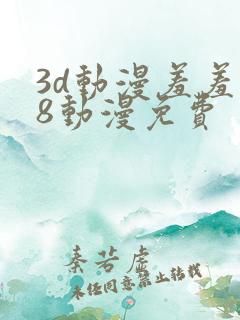 3d動漫羞羞
8動漫免費
秦若虛
未经同意禁止转载